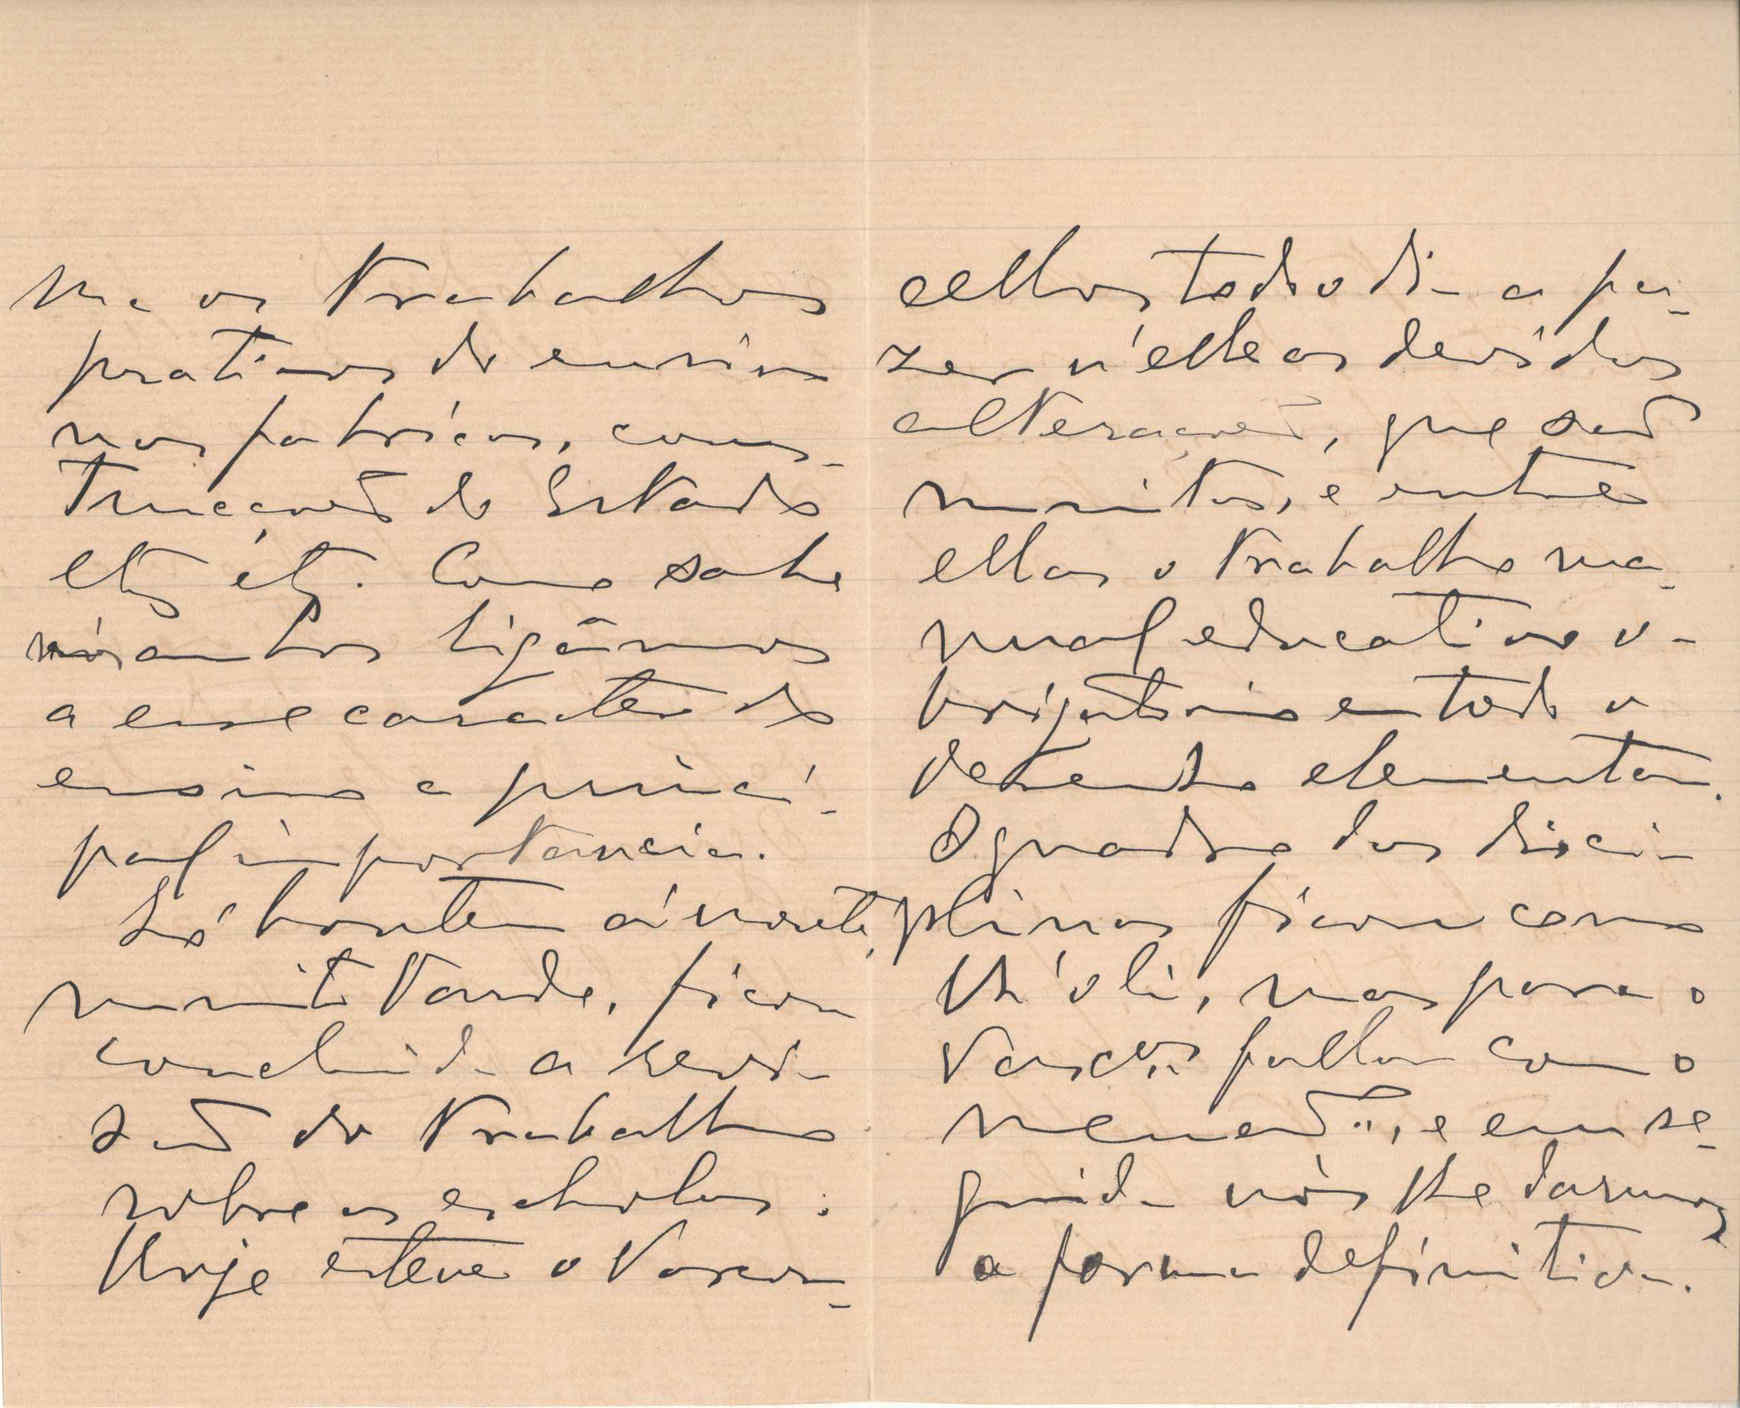 ma os trabalhos
praticos do ensino
nas fabricas, cons-
trucções do Estado
etc, etc. Como sabe
nós ambos ligâmos
a esse caracter do
ensino a princi-
pal importancia.
Só hontem á noute,
muito tarde, ficou
concluida a revi-
são do trabalho
sobre as escholas:
Hoje esteve o Vascon-
cellos todo o dia a fa-
zer n'elle as devidas
alterações, que são
muitas, e entre
ellas o trabalho ma-
nual educativo o-
brigatorio em todo o
desenho elementar.
O quadro das disci-
plinas ficou como
, mas para o
Vasc.os fallar com o
, e em se-
guida nós lhe darmos
a forma definitiva.